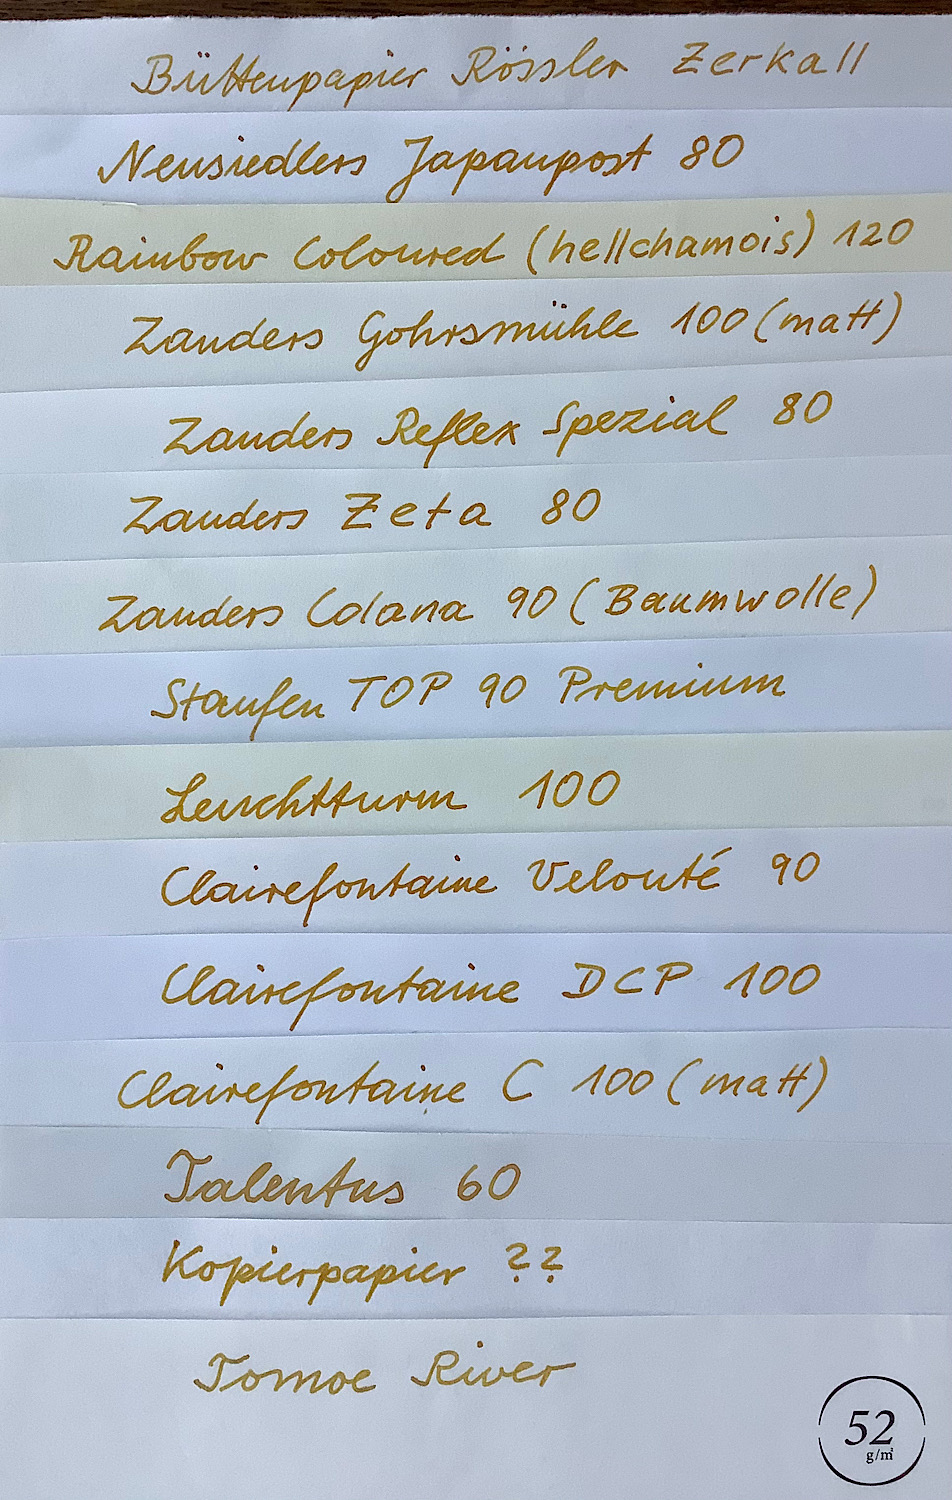 Büttenpapier Rössler Zerkall
Neusiedlers Japanpost 80
Rainbow Coloured (hellchamois) 120
Zanders Gohrsmühle 100 (matt)
Zanders Reflex Spezial 80
Zanders Zeta 80
Zanders Colana 90 (Baumwolle)
Staufen TOP 90 Premium
Leuchtturm 100
Clairefontaine Velouté 90
Clairefontaine DCP 100
Clairefontaine C 100 (matt)
Talentus 60
Kopierpapier ??
Tomoe River
52
g/m²